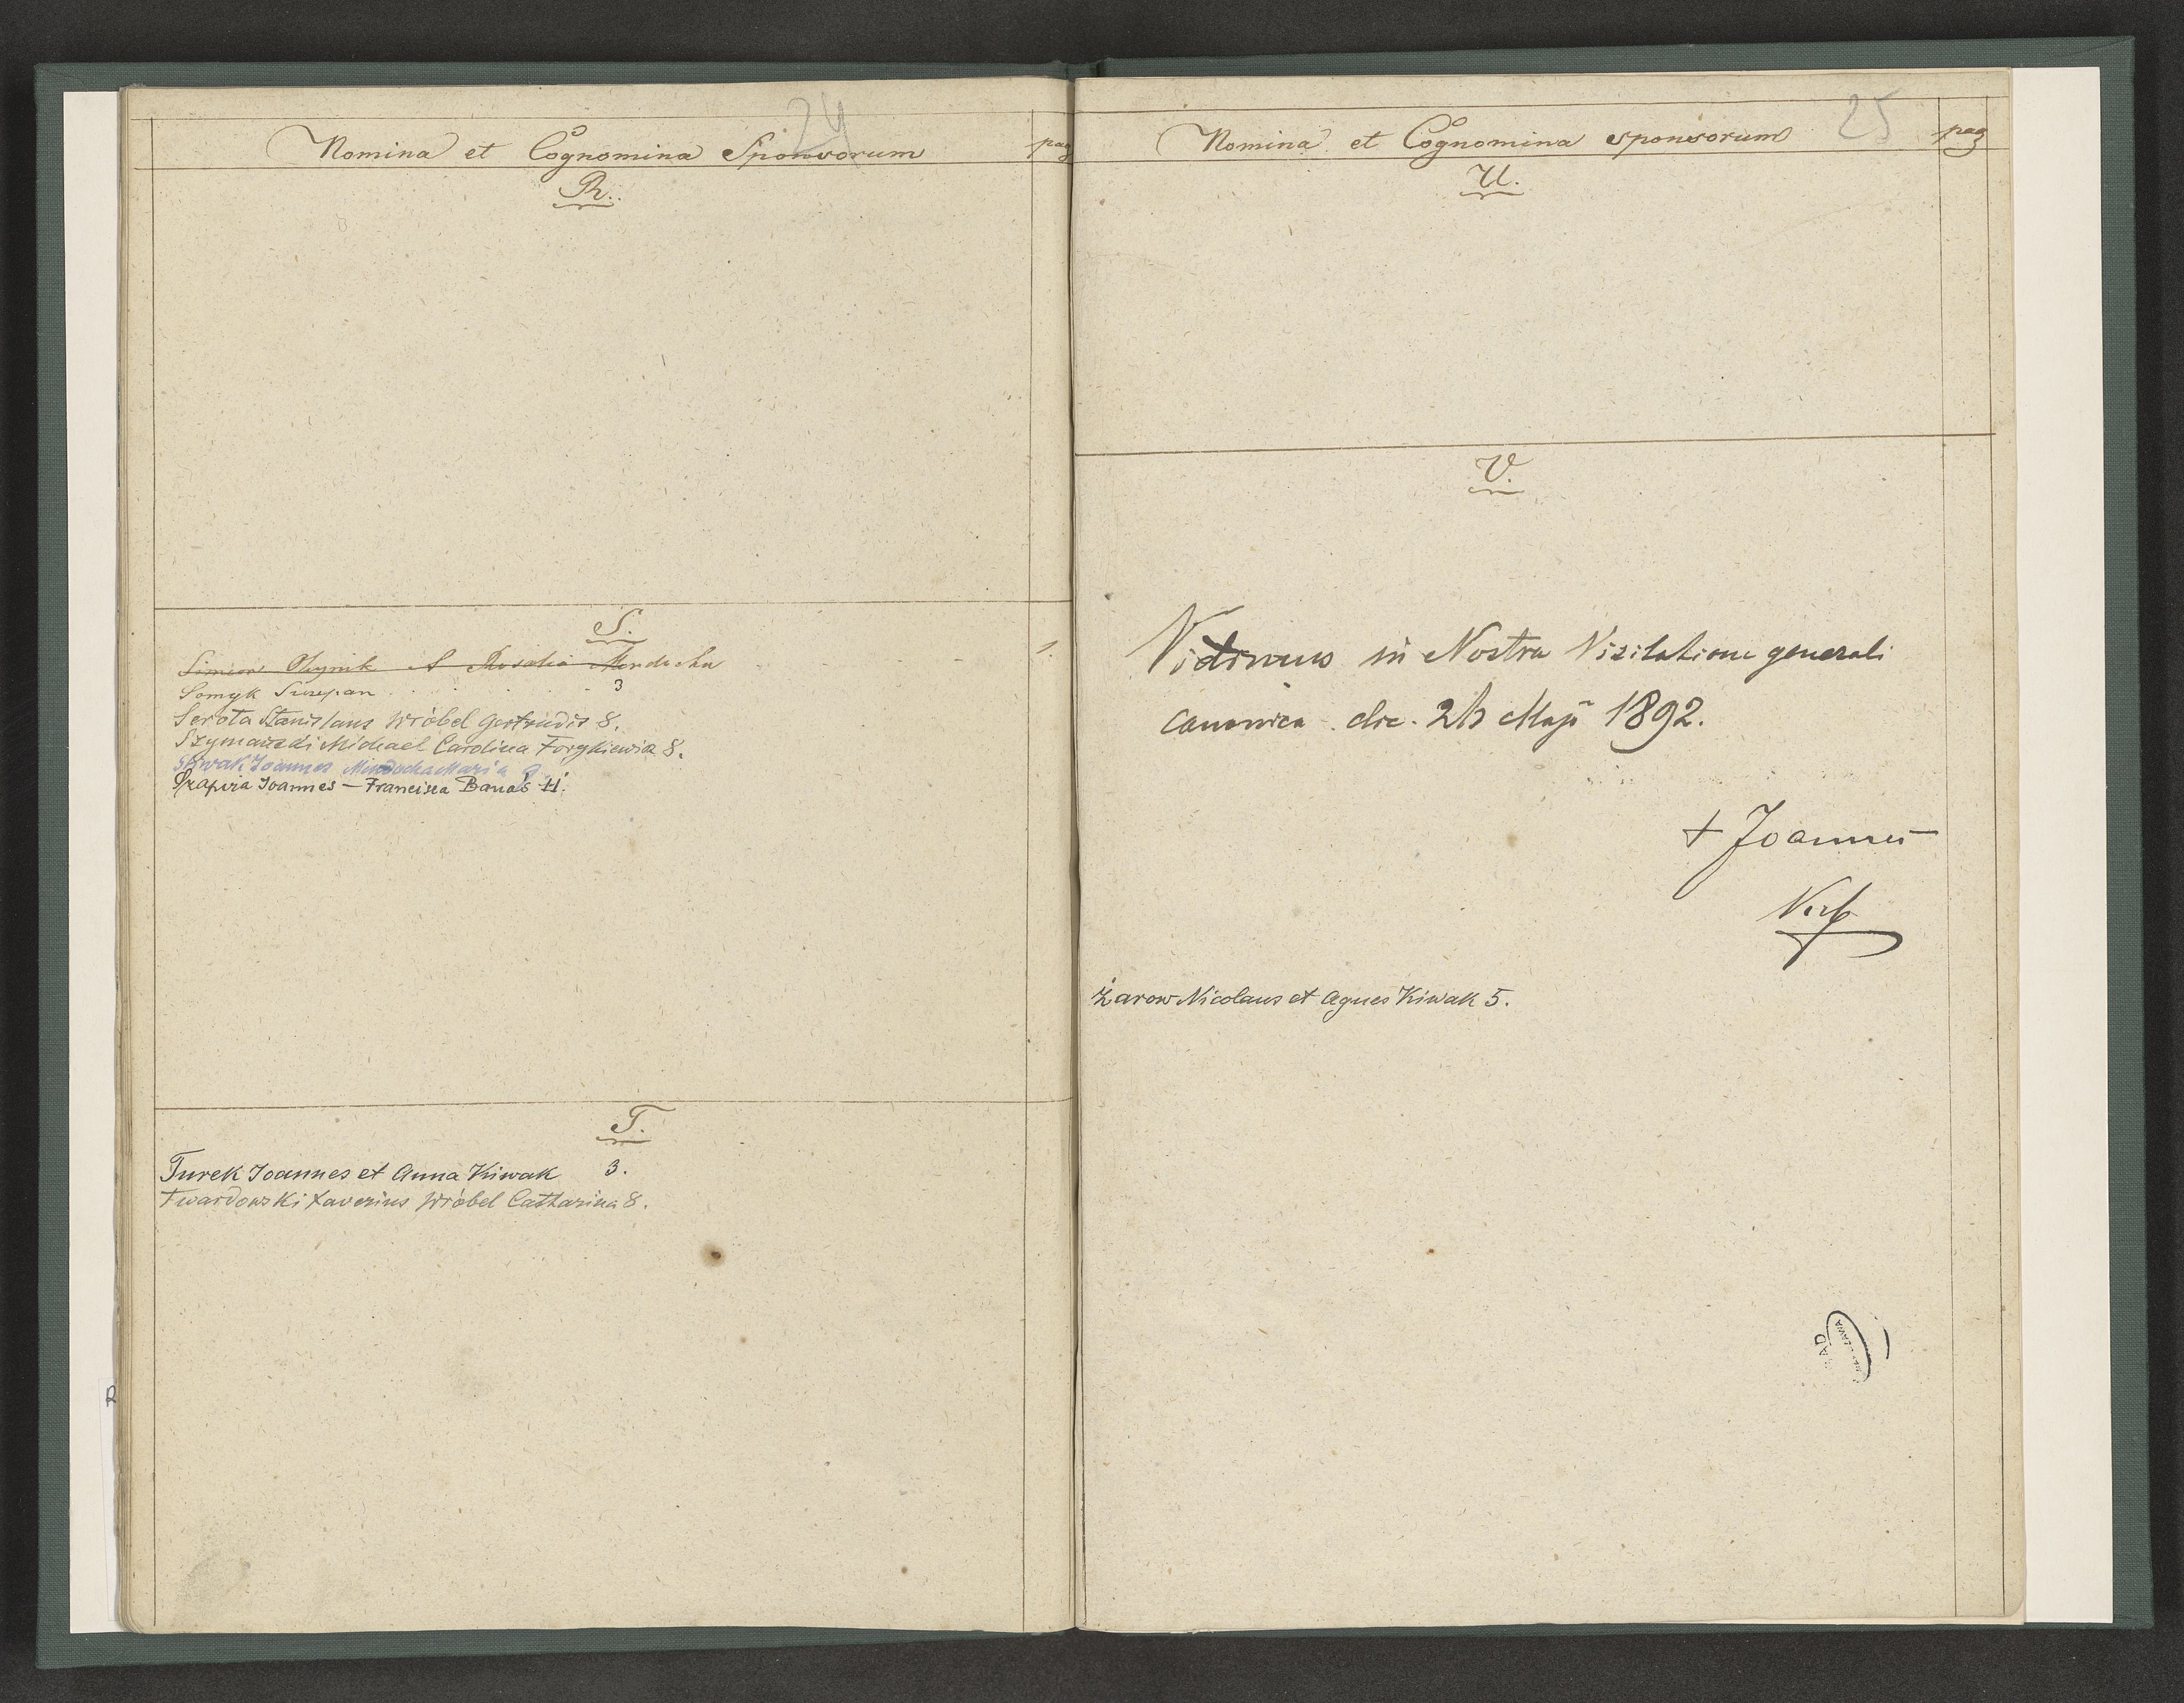 24
Nomina et Cognomina Sponsorum pag
R.
S.
Simion Olejnik & Rosalia Mindocha 1.
Somyk Szczepan 3
Serota Stanislaus Wróbel Gertrudis 8.
Michael Carolina 8.
Joannes Mindocha Maria
Joannes — Francisca Banaś 11.
T.
Turek Joannes et Anna Kiwak 3.
Twardowski Xaverius Wróbel Catharina 8.
25
Nomina et Cognomina sponsorum pag
U.
V.
Vidimus in Nostra Visitatione generali
canonica die Maji 1892.
+ Joannes
Żarow Nicolaus et Agnes Kiwak 5.
AD
R